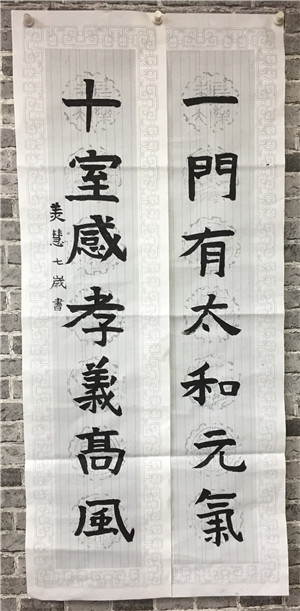 一門有太和元氣
十室感孝義高風
羙慧七歲書